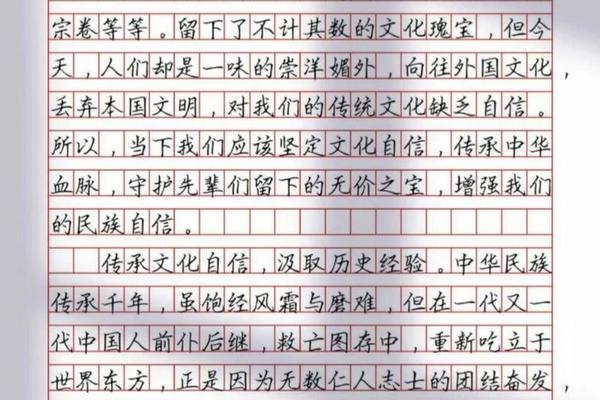 宗卷等等。留下了不计其数的文化瑰宝，但今
天，人们却是一味的崇洋媚外，向往外国文化，
丢弃本国文明，对我们的传统文化缺乏自信。
所以，当下我们应该坚定文化自信，传承中华
血脉，守护先辈们留下的无价之宝，增强我们
的民族自信。
传承文化自信，汲取历史经验。中华民族
传承千年，虽饱经风霜与磨难，但在一代又一
代中国人前仆后继，救亡图存中，重新吃立于
世界东方，正是因为无数仁人志士的团结奋发，